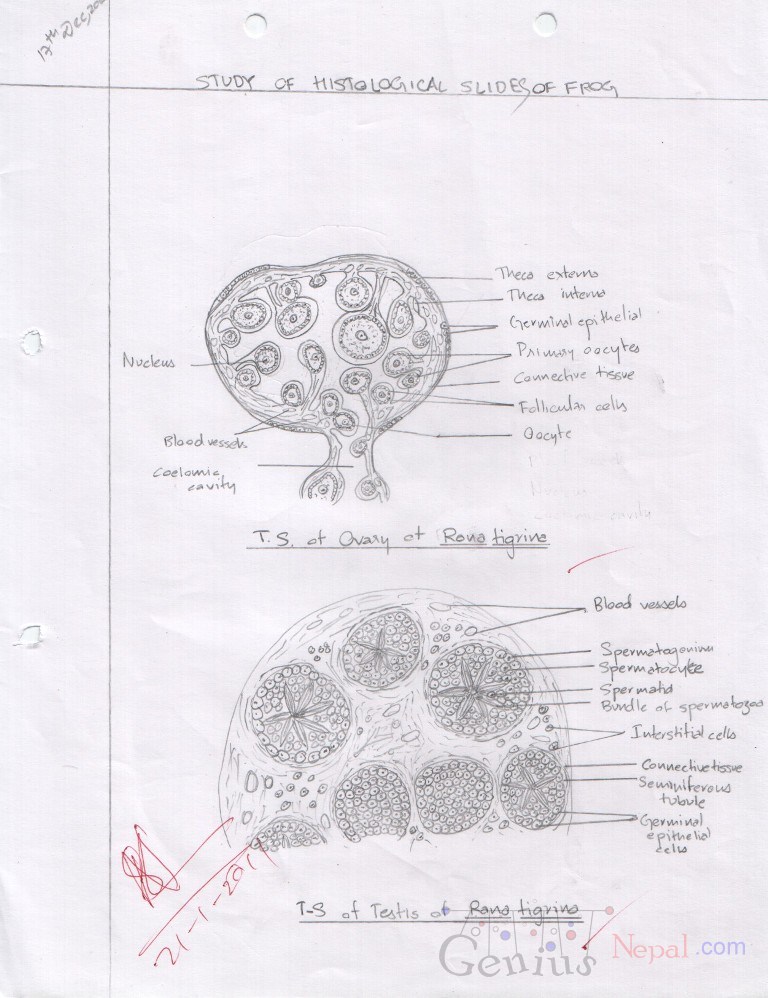 17th Dec, 20
STUDY OF HISTOLOGICAL SLIDES OF FROG
Theca externa
Theca interna
Germinal epithelial
Primary oocytes
Connective tissue
Follicular cells
Oocyte
Nucleus
Blood vessels
Coelomic
cavity
T.S. of Ovary of Rana tigrina
Blood vessels
Spermatogonium
Spermatocyte
Spermatid
Bundle of spermatozoa
Interstitial cells
Connective tissue
Seminiferous
tubule
Germinal
epithelial
cells
21-1-2011
T-S of Testis of Rana tigrina
Genius Nepal.com